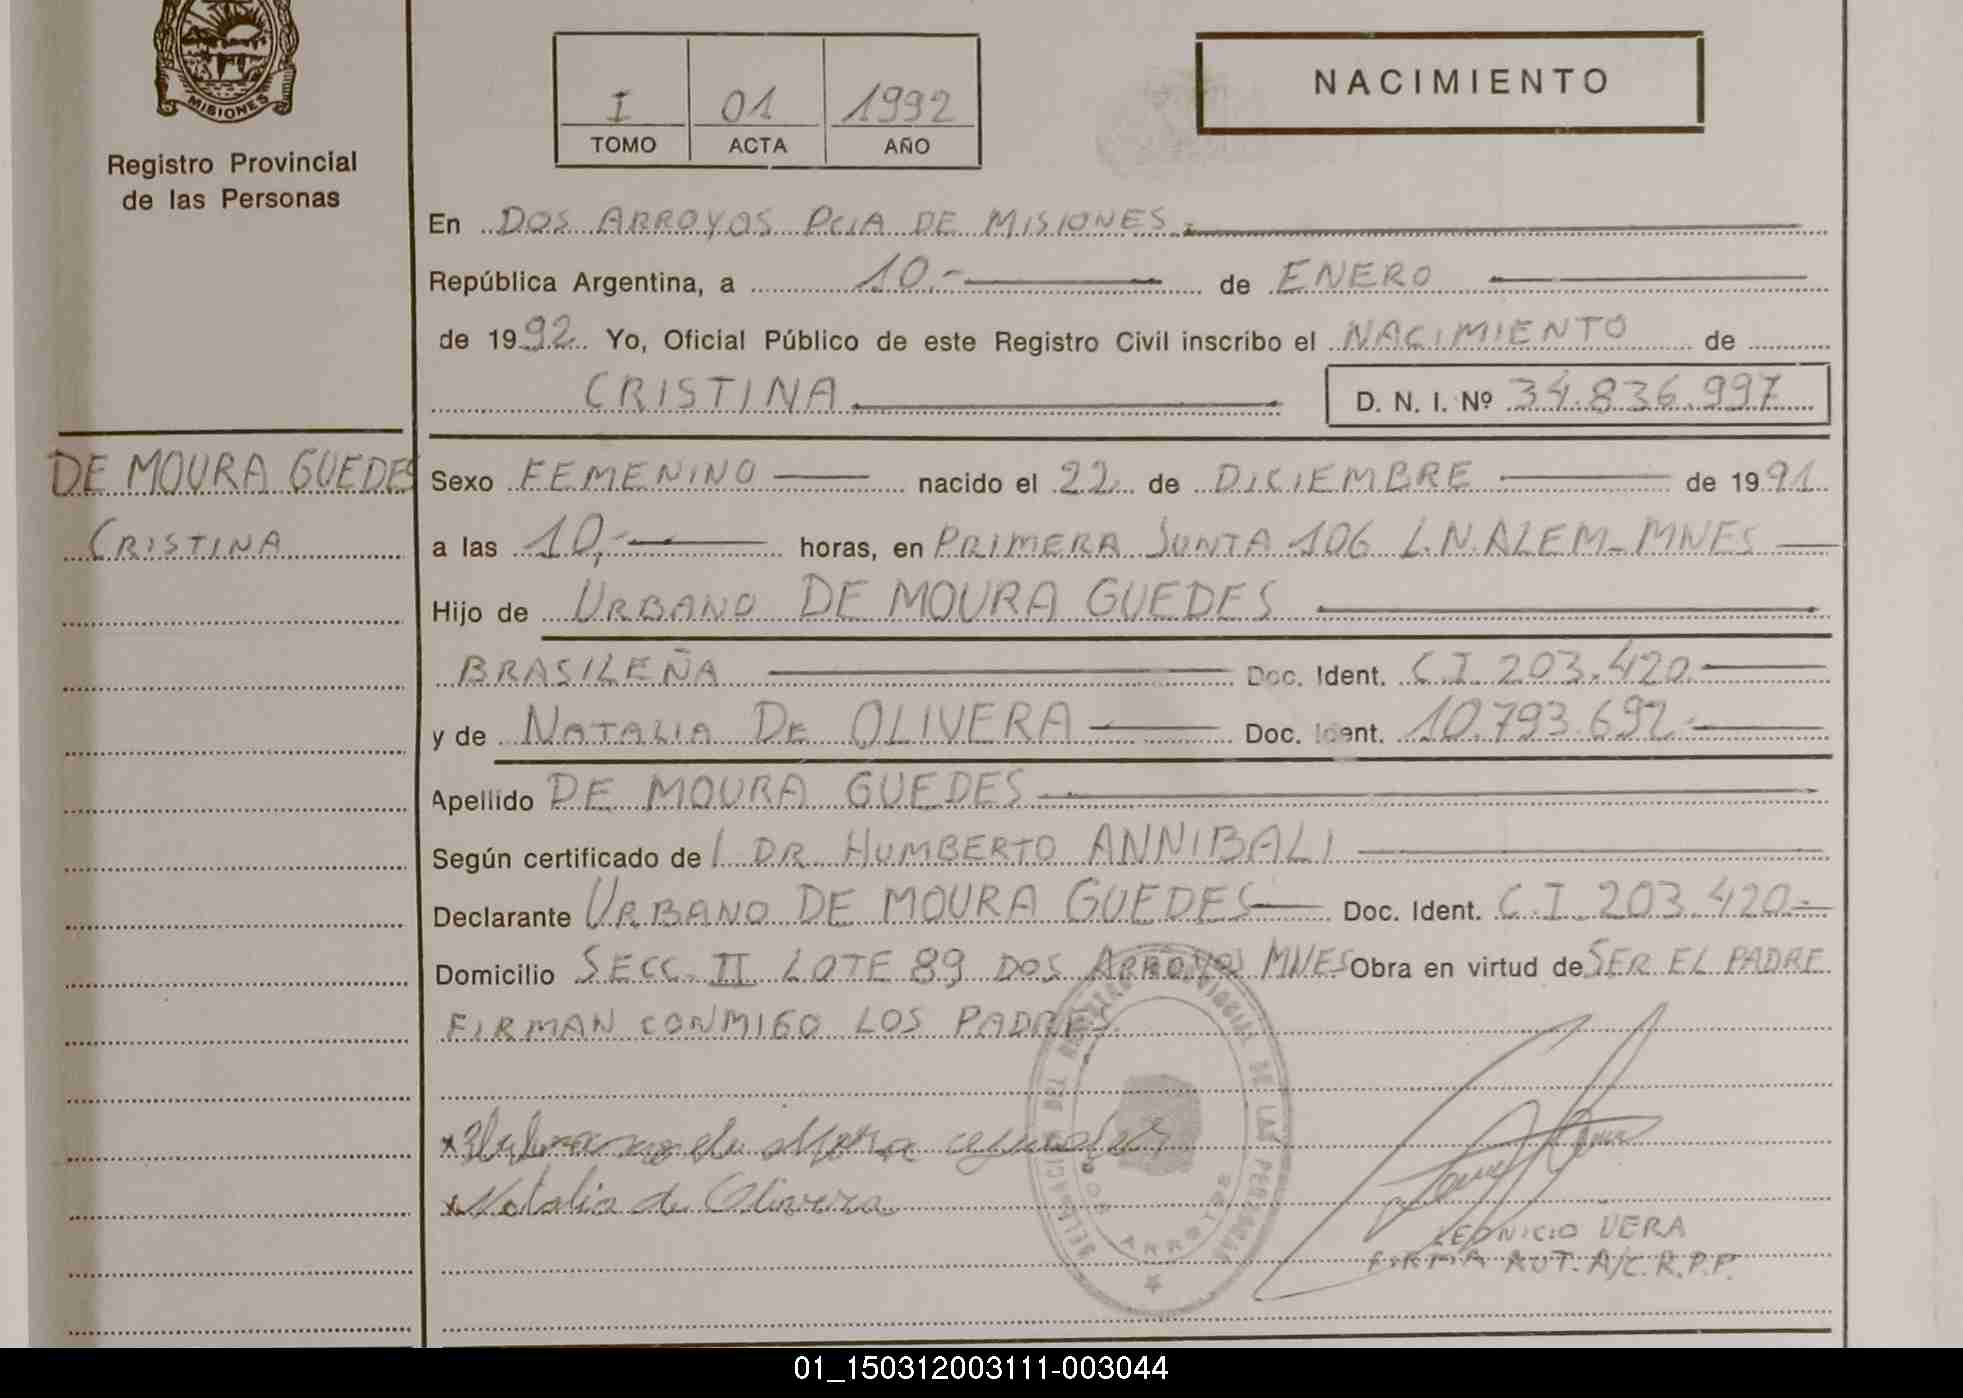 MISIONES
Registro Provincial
de las Personas
I 01 1992
TOMO ACTA AÑO
NACIMIENTO
En DOS ARROYOS PCIA DE MISIONES.
República Argentina, a 10.- de ENERO
de 1992. Yo, Oficial Público de este Registro Civil inscribo el NACIMIENTO de
CRISTINA D. N. I. Nº 34.836.997
DE MOURA GUEDES
CRISTINA
Sexo FEMENINO nacido el 22 de DICIEMBRE de 1991
a las 10,- horas, en PRIMERA JUNTA 106 L.N.ALEM-MNES
Hijo de URBANO DE MOURA GUEDES
BRASILEÑA Doc. Ident. C.I. 203.420
y de NATALIA DE OLIVERA Doc. Ident. 10.793.692-
Apellido DE MOURA GUEDES
Según certificado de l DR. HUMBERTO ANNIBALI
Declarante URBANO DE MOURA GUEDES Doc. Ident. C.I. 203.420-
Domicilio SECC. II LOTE 89 DOS ARROYOS MNES Obra en virtud de SER EL PADRE
FIRMAN CONMIGO LOS PADRES
DELEGACION DEL REGISTRO PROVINCIAL DE LAS PERSONAS
DOS ARROYOS
x Natalia de Olivera
LEONICIO VERA
FIRMA AUT. A/C. R.P.P.
01_150312003111-003044